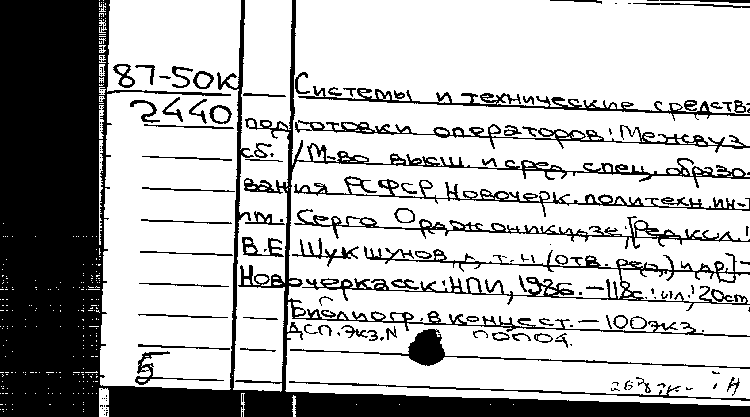 87-50К
2440
Системы и технические средства
подготовки операторов: Межвуз.
сб. / М-во высш. и сред. спец. образо-
вания РСФСР, Новочерк. политехн. ин-т
им. Серго Орджоникидзе; [Редкол.:
В.Е. Шукшунов, д.т.н. (отв. ред.) и др.] -
Новочеркасск: НПИ, 1986. - 118с.: ил.; 20см.
Библиогр. в конце ст. - 100экз.
ДСП. Экз. N
5